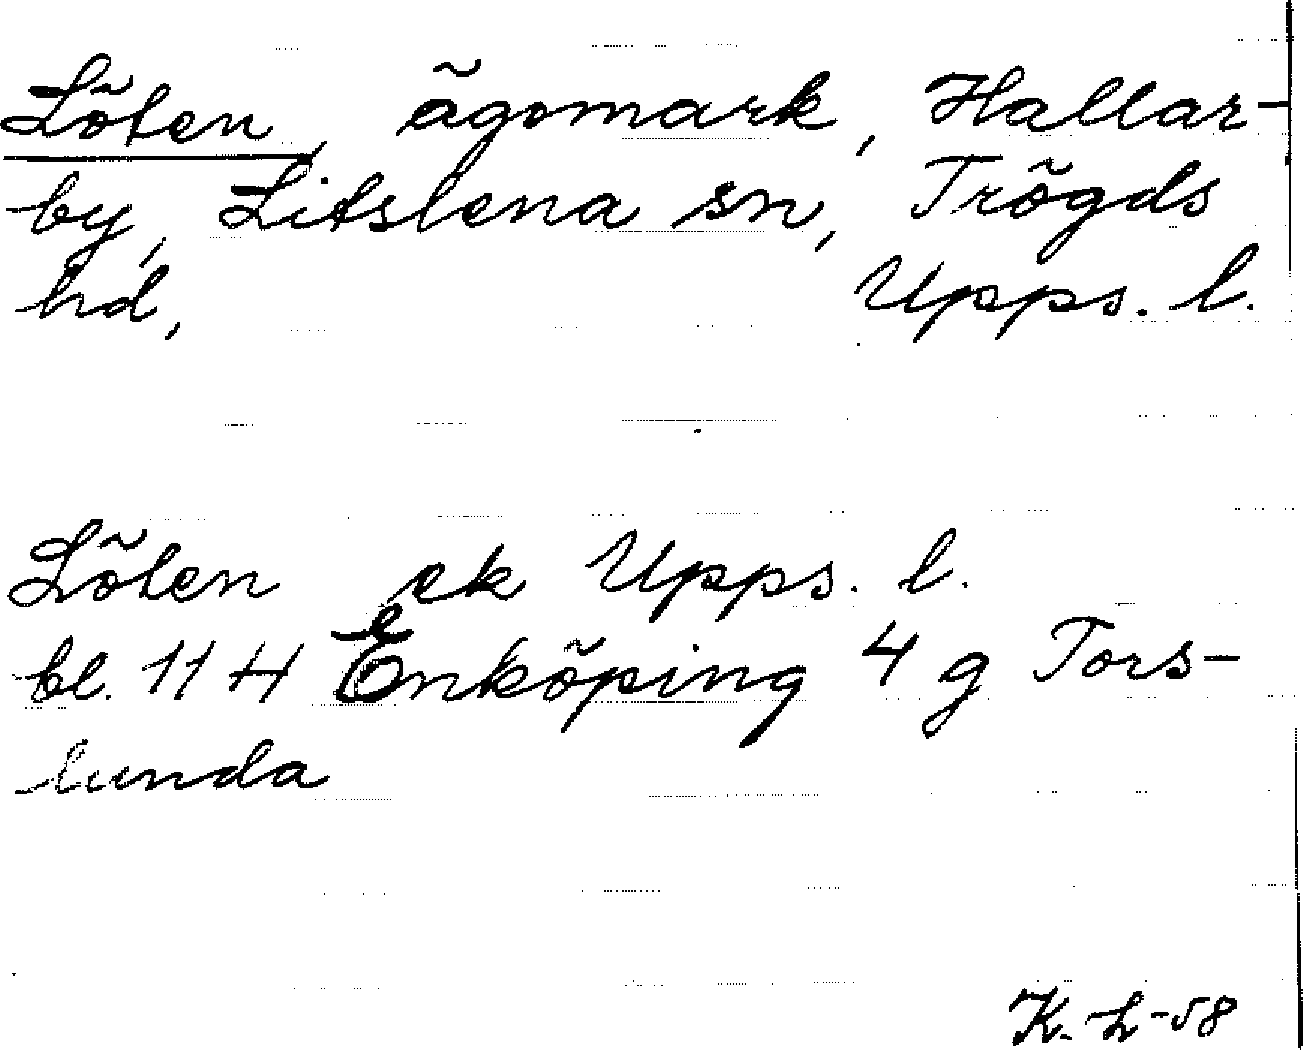 Löten, ägomark, Hallar-
by, Litslena sn, Trögds
hd, Upps. l.
Löten ek Upps. l.
bl. 11 H Enköping 4 g Tors-
lunda
K.-L-58